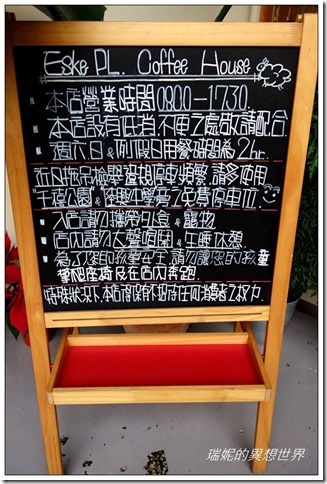 Eske PL. Coffee House
本店營業時間0800-1730.
本店設有低消.不便之處敬請配合.
週六日&例假日用餐時間為2hr.
近日拖吊檢舉違規停車頻繁.請多使用
入店請勿攜帶外食&寵物.
店內請勿大聲喧鬧&午睡休憩.
為了您的孩童安全.請勿讓您的孩童
攀爬座椅及在店內奔跑.
特殊狀況下.本店得保有不招待任何消費者之權力.
瑞妮的異想世界